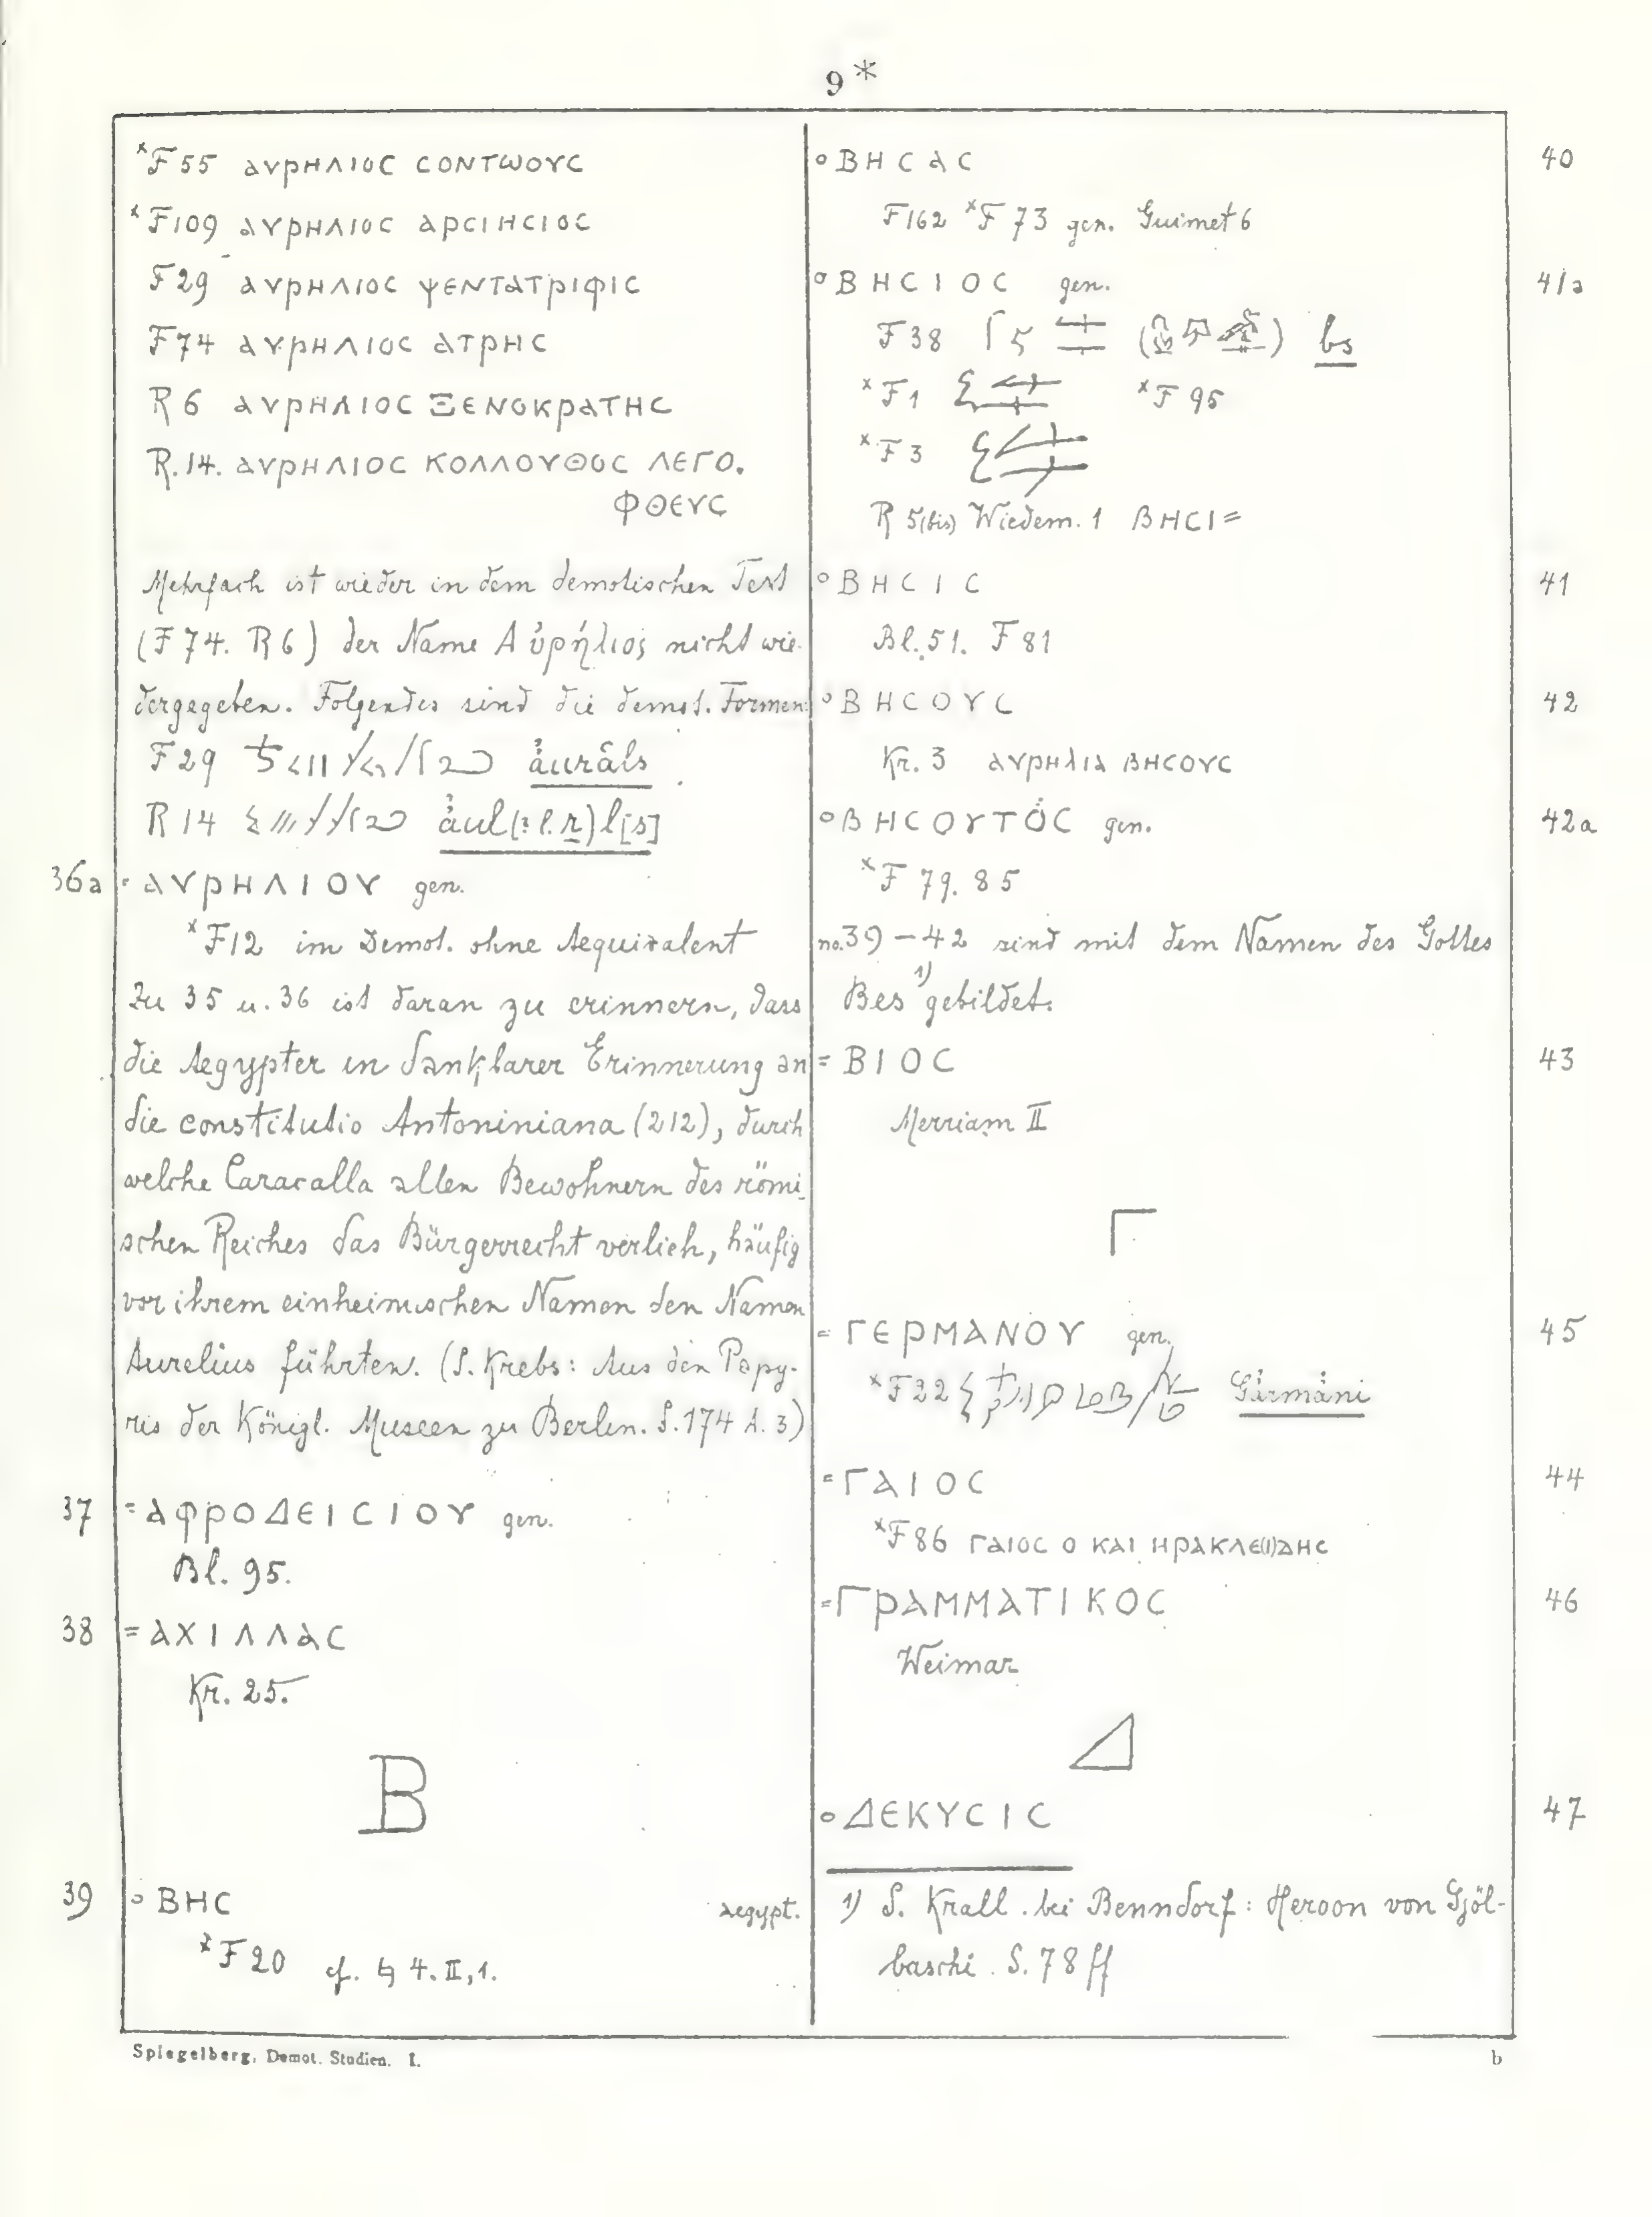 9*
*F 55 ΑΥΡΗΛΙΟC CΟΝΤωΟΥC
*F109 ΑΥΡΗΛΙΟC ΑΡCΙΗCΙΟC
F 29 ΑΥΡΗΛΙΟC ΨΕΝΤΑΤΡΙΦΙC
F 74 ΑΥΡΗΛΙΟC ΑΤΡΗC
R 6 ΑΥΡΗΛΙΟC ΞΕΝΟΚΡΑΤΗC
R. 14. ΑΥΡΗΛΙΟC ΚΟΛΛΟΥΘΟC ΛΕΓΟ.
ΦΘΕΥC
Mehrfach ist wieder in dem demotischen Text
(F 74. R 6) der Name Αὐρήλιος nicht wie-
dergegeben. Folgendes sind die demot. Formen:
F 29 åuråls
R 14 åul(? l. r)l[s]
36a = ΑΥΡΗΛΙΟΥ gen.
*F12 im Demot. ohne Aequivalent
Zu 35 u. 36 ist daran zu erinnern, dass
die Aegypter in dankbarer Erinnerung an
die constitutio Antoniniana (212), durch
welche Caracalla allen Bewohnern des römi-
schen Reiches das Bürgerrecht verlieh, häufig
vor ihrem einheimischen Namen den Namen
Aurelius führten. (S. Krebs: Aus den Papy-
ris der Königl. Museen zu Berlin. S. 174 A. 3)
37 = ΑΦΡΟΔΕΙCΙΟΥ gen.
Bl. 95.
38 = ΑΧΙΛΛΑC
Kr. 25.
B
39 o ΒΗC aegypt.
*F 20 cf. § 4. II, 1.
o ΒΗCΑC 40
F162 *F 73 gen. Guimet 6
o ΒΗCΙΟC gen. 41a
F 38 bs
*F 1 *F 95
*F 3
R 5(bis) Wiedem. 1 ΒΗCΙ=
o ΒΗCΙC 41
Bl. 51. F 81
o ΒΗCΟΥC 42
Kr. 3 ΑΥΡΗΛΙΑ ΒΗCΟΥC
o ΒΗCΟΥΤΟC gen. 42a
*F 79. 85
no. 39 – 42 sind mit dem Namen des Gottes
Bes 1) gebildet.
= ΒΙΟC 43
Merriam II
Γ
= ΓΕΡΜΑΝΟΥ gen. 45
*F22 Gårmåni
= ΓΑΙΟC 44
*F 86 ΓΑΙΟC Ο ΚΑΙ ΗΡΑΚΛΕ(Ι)ΔΗC
= ΓΡΑΜΜΑΤΙΚΟC 46
Weimar
Δ
o ΔΕΚΥCΙC 47
1) S. Krall. bei Benndorf: Heroon von Gjöl-
baschi. S. 78 ff
Spiegelberg, Demot. Studien. I.
b